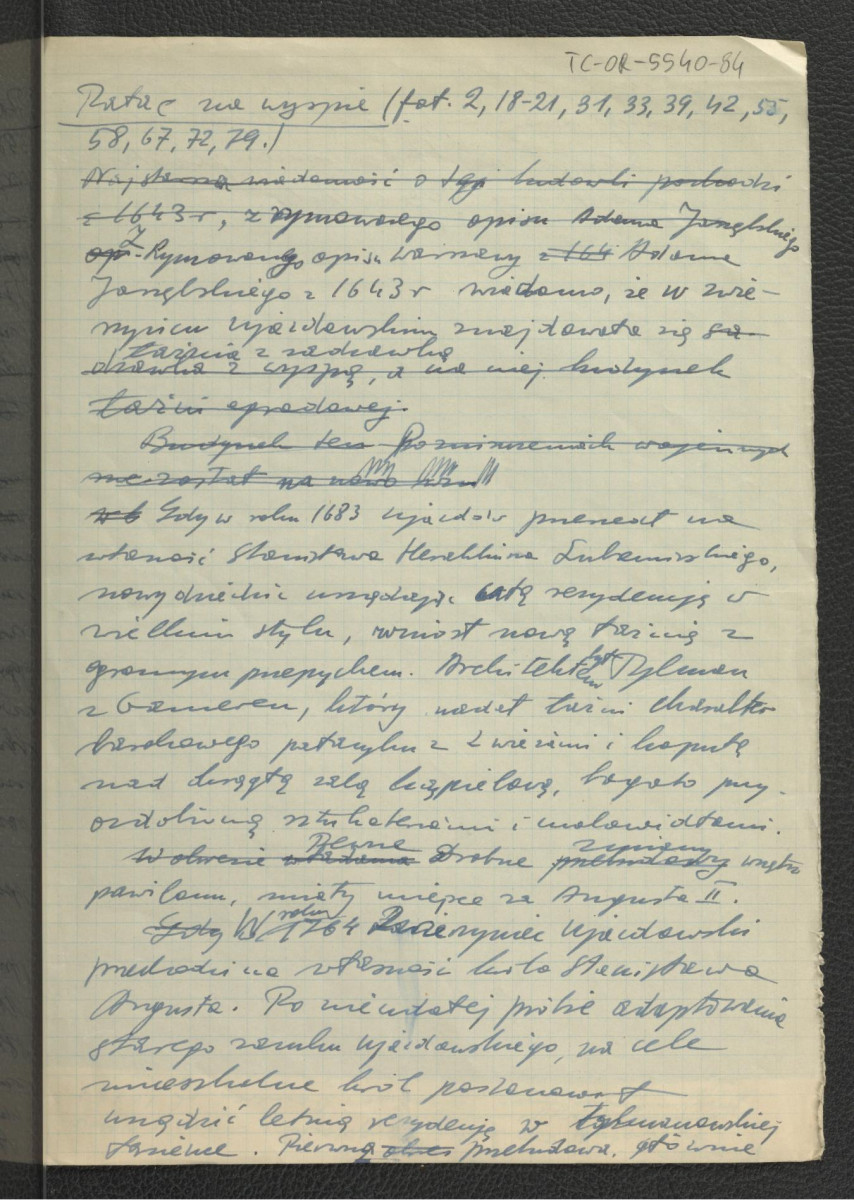 TC-OR-5540-84
Pałac na wyspie (fot. 2, 18-21, 31, 33, 39, 42, 55,
58, 67, 72, 79.)
Najstarsza wiadomość o tej budowli pochodzi
z 1643 r, z rymowanego opisu Adama Jarzębskiego
Z Rymowanego opisu Warszawy z 164 Adama
Jarzębskiego z 1643 r wiadomo, że w zwie-
rzyńcu Ujazdowskim znajdowała się sa-
łaźnia z sadzawką
dzawka z wyspą, a na niej budynek
łaźni ogrodowej.
Budynek ten Po zniszczeniach wojennych
nie został na nowo
Gdy w roku 1683 Ujazdów przeszedł na
własność Stanisława Herakliusza Lubomirskiego,
nowy dziedzic urządzając całą rezydencję w
wielkim stylu, wzniósł nową łaźnię z
ogromnym przepychem. Architektem był Tylman
z Gameren, który nadał łaźni charakter
barokowego pałacyku z 2 wieżami i kopułą
nad okrągłą salą kąpielową, bogato przy-
ozdobioną sztukateriami i malowidłami.
W okresie władania Pewne Drobne przebudowy zmiany wnętrz
pawilonu, miały miejsce za Augusta II.
Gdy W roku 1764 Zwierzyniec Ujazdowski
przechodzi na własność króla Stanisława
Augusta. Po nieudałej próbie adaptowania
starego zamku Ujazdowskiego, na cele
mieszkalne król postanowił
urządzić letnią rezydencję w tylmanowskiej
Łazience. Pierwsza okres przebudowa, głównie